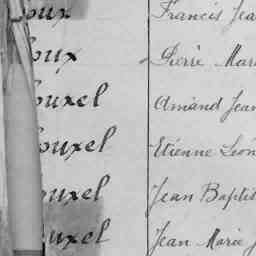 oux Francis Jea
oux Pierre Mar
ouxel Amand Jean
ouxel Etienne Léon
ouxel Jean Baptis
uxel Jean Marie J